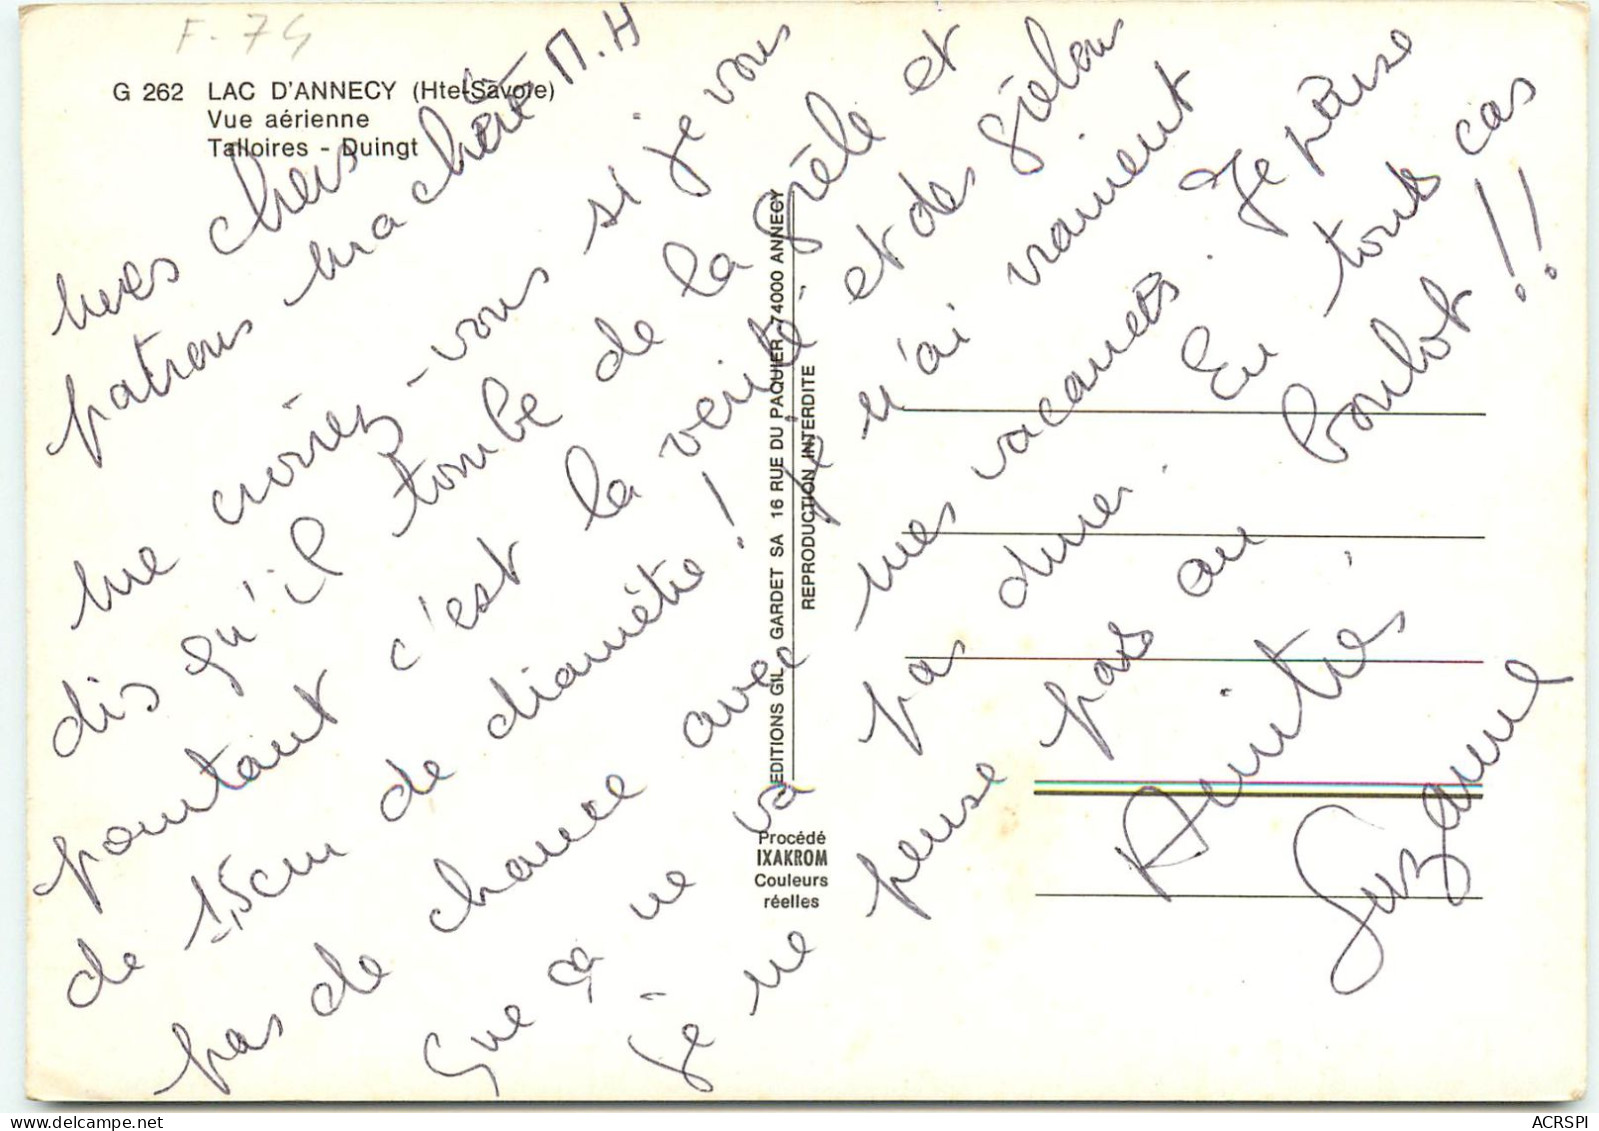 F. 74
G 262 LAC D'ANNECY (Hte-Savoie)
Vue aérienne
Talloires - Duingt
mes chers
patrons ma chère M.H
me croirez-vous si je vous
dis qu'il tombe de la grêle et
pourtant c'est la vérité - et des grêlons
de 1,5cm de diamètre ! je n'ai vraiment
pas de chance avec mes vacances. Je pense
que ça ne va pas durer. En tous cas
je ne pense pas au boulot !!
Amitiés,
Suzanne
EDITIONS GIL GARDET SA 16 RUE DU PAQUIER 74000 ANNECY
REPRODUCTION INTERDITE
Procédé
IXAKROM
Couleurs
réelles
ACRSPI